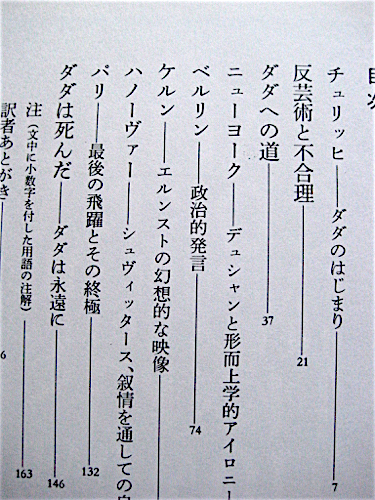 目次
チューリッヒ――ダダのはじまり――7
反芸術と不合理――21
ダダへの道――37
ニューヨーク――デュシャンと形而上学的アイロニー
ベルリン――政治的発言――74
ケルン――エルンストの幻想的な映像
ハノーヴァー――シュヴィッタース、叙情を通しての
パリ――最後の飛躍とその終極――132
ダダは死んだ――ダダは永遠に――146
注（文中に小数字を付した用語の注解）――163
訳者あとがき――6